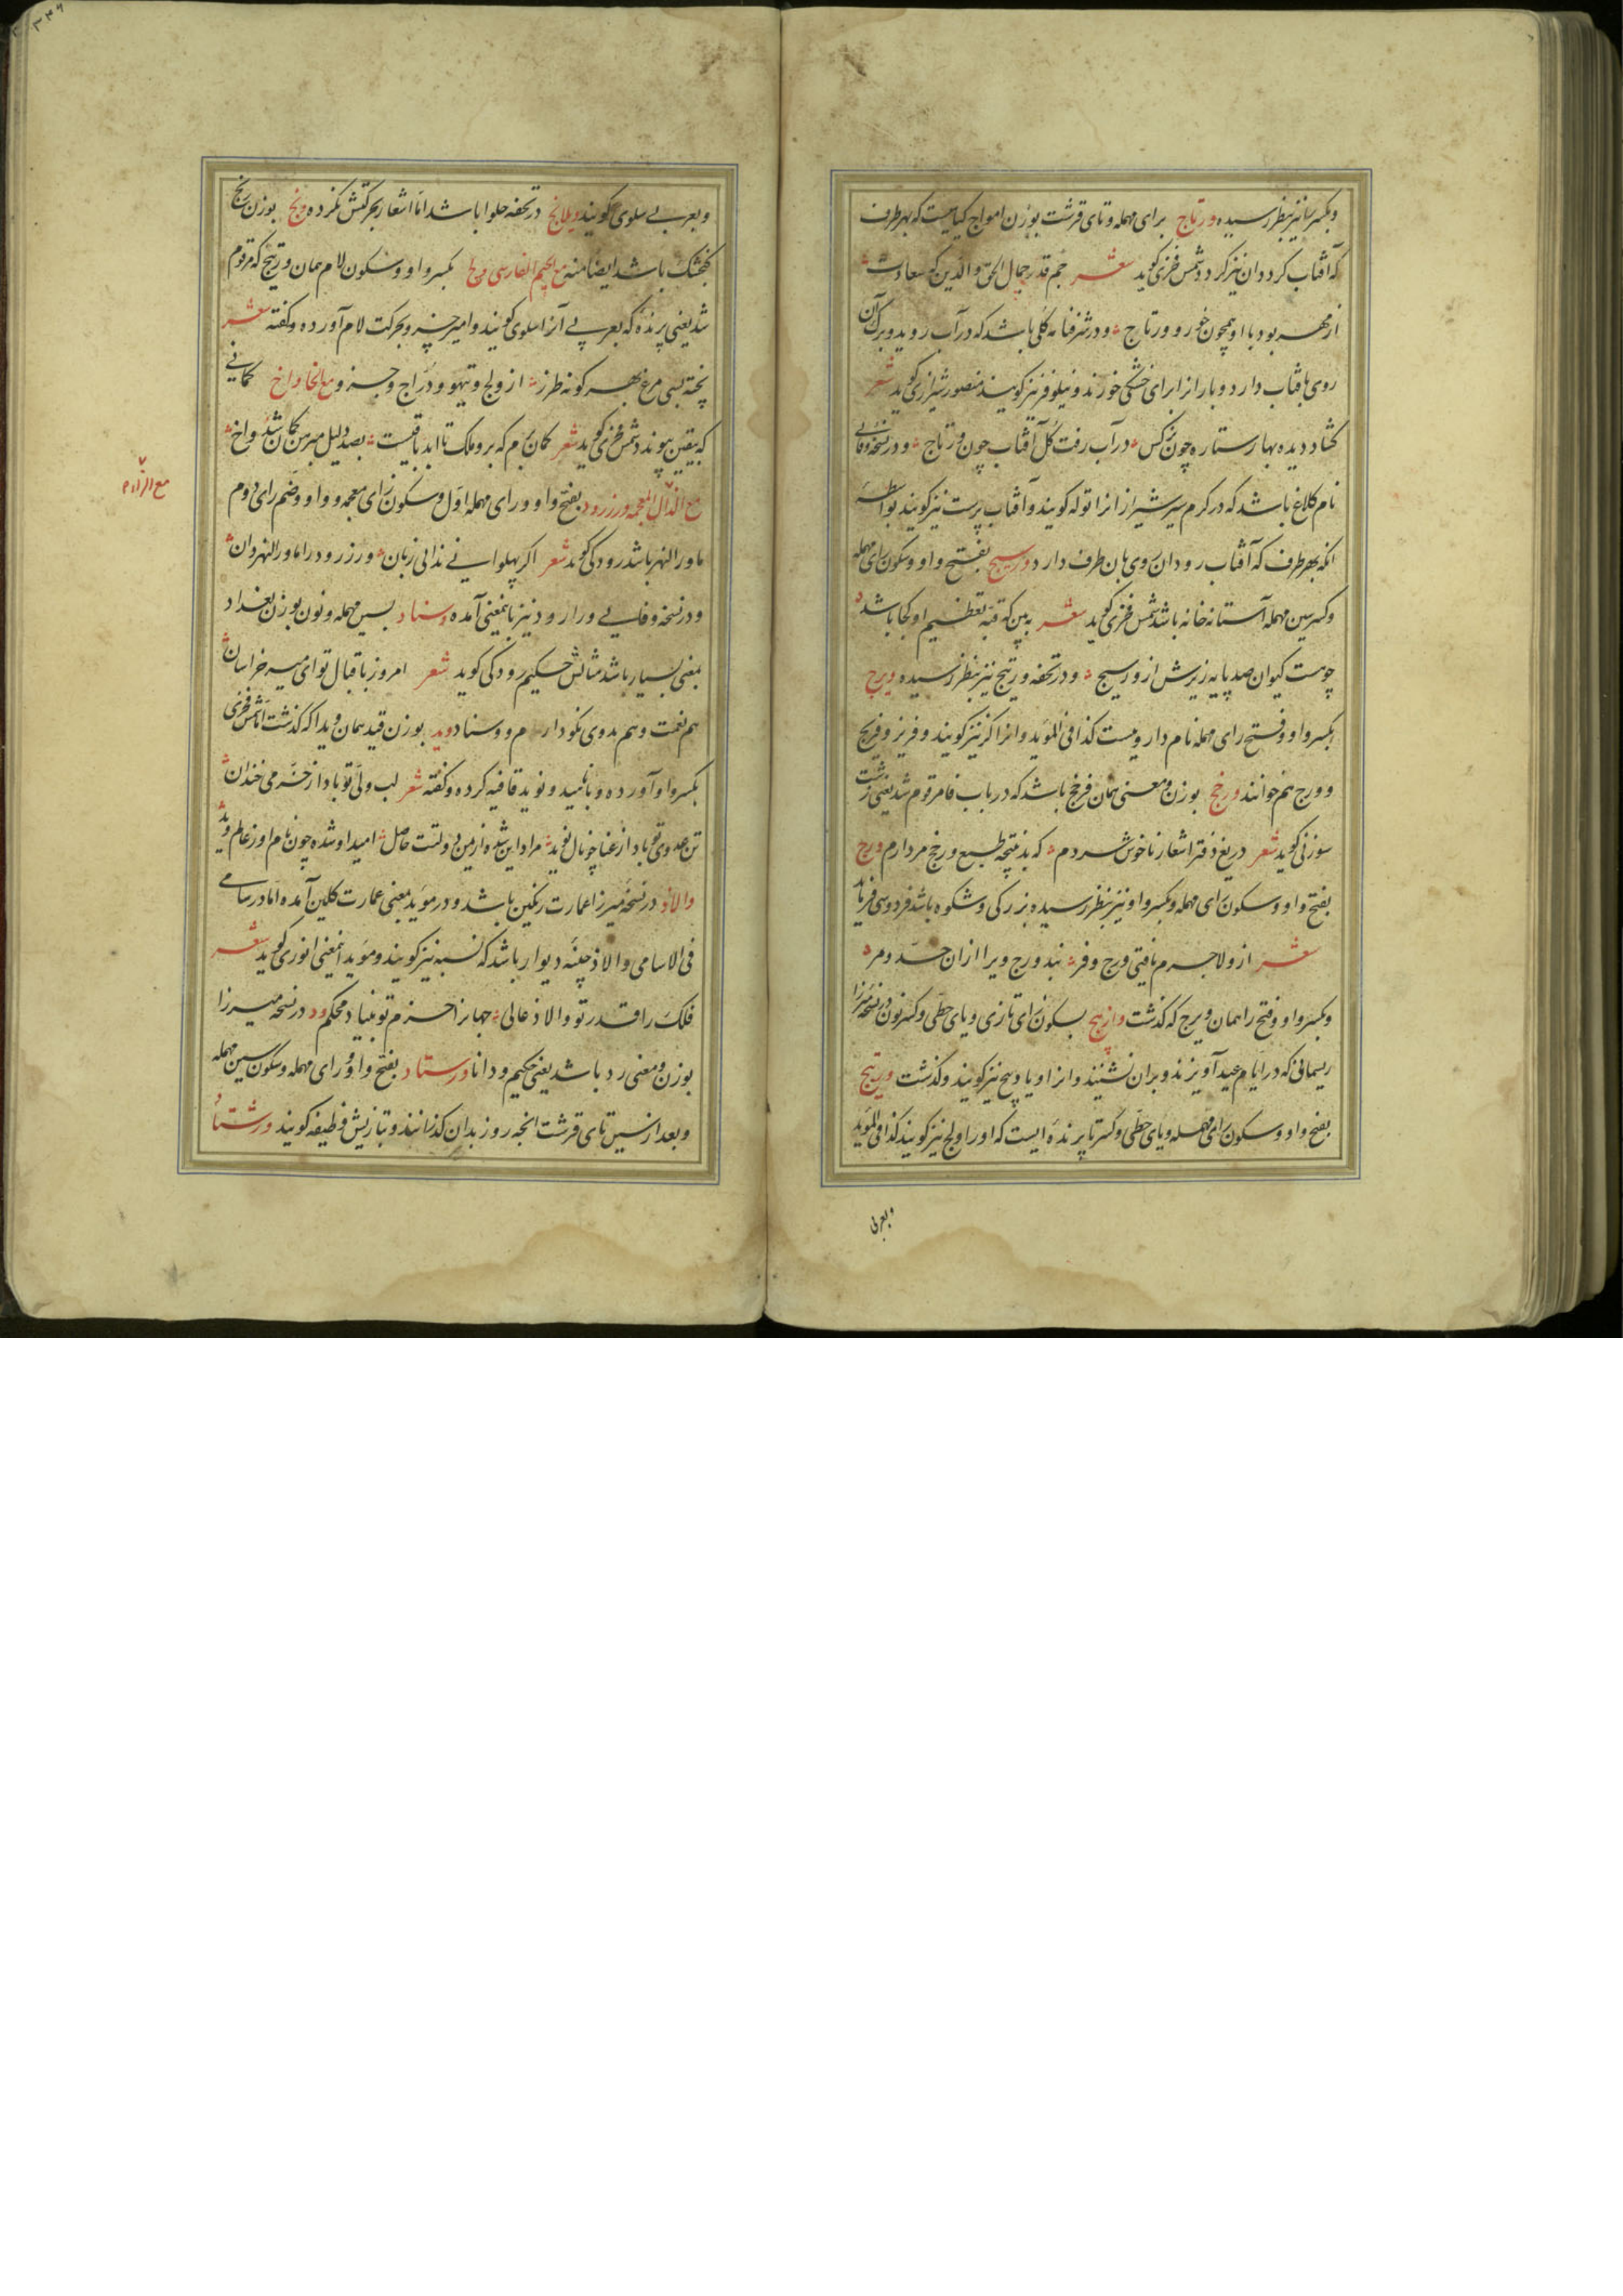 وبکسر تا نیز بنظر رسیده ورتاج برای مهمله وتای قرشت بوزن امواج کیاهیست که بهر طرف
که آفتاب کردد ان نیز کردد شمس فخری کوید شعر جم قدر جمال الحق والدین که سعادت
از مهر بود با او همچون خور و ورتاج ودر شرفنامه کلی باشد که در آب روید وبرک آن
روی بافتاب دارد وبار انرا برای خشکی خورند ونیلوفر نیز کویند منصور شیرازی کوید شعر
کشاد دیده بهار ستاره چون نرکس در آب رفت کل آفتاب چون ورتاج ودر نسخه وفائی
نام کلاغ باشد که در کرم سیر شیراز انرا توله کویند وآفتاب پرست نیز کویند بواسطه
انکه بهر طرف که آفتاب رود ان روی بان طرف دارد ورسیج بفتح واو وسکون رای مهمله
وکسر سین مهمله آستانه خانه باشد شمس فخری کوید شعر به بین که قبه تعظیم او کجا باشد
چوست کیوان صد پایه زیرش از ورسیج ودر تحفه وریج نیز بنظر رسیده ویرج
بکسر واو وفتح رای مهمله نام دارویست کذا فی المؤید وانرا اکر نیز کویند وفریز وفریج
وورج هم خوانند ورخج بوزن ومعنی همان فرخج باشد که در باب فا مرقوم شد یعنی زشت
سوزنی کوید شعر دریغ دفتر اشعار ناخوش سردم که بد نتیجه طبع ورخج مردارم ورج
بفتح واو وسکون رای مهمله وبکسر واو نیز بنظر رسیده بزرکی وشکوه باشد فردوسی فرماید
شعر ازو لاجرم یافتی ورج وفر بند ورج ویرا ازان حد ومر
وبکسر واو وفتح را همان ویرج که کذشت وازنیج بسکون زای تازی ویای حطی وکسر نون در نسخه میرزا
ریسمانی که در ایام عید آویزند وبران نشینند وانرا ویازیچ نیز کویند وکذشت ورتیج
بفتح واو وسکون رای مهمله ویای حطی وکسر تا پرنده ایست که اورا ولج نیز کویند کذا فی المؤید
وبعربی
وبعربی سلوی کویند ویلانج در تحفه حلوا باشد اما اشعار بحرکتش نکرده ونج بوزن رنج
کنجشک باشد ایضا منه مع الجیم الفارسی ولج بکسر واو وسکون لام همان ورتیج که مرقوم
شد یعنی پرنده که بعربی آنرا سلوی کویند وامیر خسرو بحرکت لام آورده وکفته شعر
پخته بسی مرغ بهر کونه طرز از ولج وتیهو ودراج وچرز مع الخا واخ کمانی
که بیقین پیوندد شمس فخری کوید شعر کمان برم که برو ملک تا ابد باقیست بصد دلیل مبرهن کمان شد واخ
مع الذال المعجمه ورزرود بفتح واو ورای مهمله اول وسکون زای معجمه وواو وضم رای دوم
ماورا النهر باشد رودکی کوید شعر اکر پهلوانی ندانی زبان ورزرود را ماورالنهر دان
ودر نسخه وفائی ورارود نیز باینمعنی آمده وسناد بسین مهمله ونون بوزن بغداد
بمعنی بسیار باشد مثالش حکیم رودکی کوید شعر امروز باقبال تو ای میر خراسان
هم نعمت وهم روی نکو دارم ووسناد وید بوزن قید همان ویدا که کذشت اما شمس فخری
بکسر واو آورده وبا ناهید ونوید قافیه کرده وکفته شعر لب ولی تو باد از خرمی خندان
تن عدوی تو باد از عنا چونال نوید مراد این بنده از یمن دولتت حاصل امید او شده چون نام او ز عالم وید
والاذ در نسخه میرزا عمارت رنکین باشد ودر مؤید بمعنی عمارت کلین آمده اما در سامی
فی الاسامی والاذ چینه دیوار باشد که نسبه نیز کویند ومؤید اینمعنی انوری کوید شعر
فلک را قدر تو والاذ عالی جهانرا حزم تو بنیاد محکم ود در نسخه میرزا
بوزن ومعنی رد باشد یعنی حکیم ودانا ورستاد بفتح واو ورای مهمله وسکون سین مهمله
وبعد از سین تای قرشت انچه روز بدان کذرانند وبتازیش وظیفه کویند ورشتاد